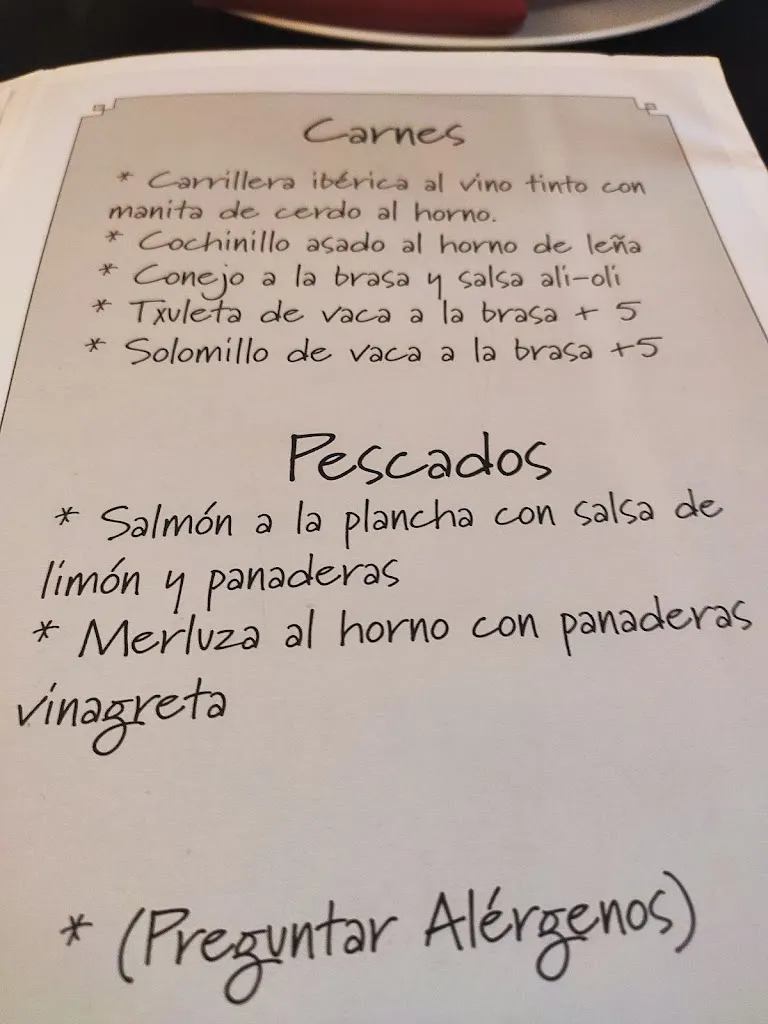 Carnes
* Carrillera ibérica al vino tinto con
manita de cerdo al horno.
* Cochinillo asado al horno de leña
* Conejo a la brasa y salsa ali-oli
* Txuleta de vaca a la brasa + 5
* Solomillo de vaca a la brasa +5
Pescados
* Salmón a la plancha con salsa de
limón y panaderas
* Merluza al horno con panaderas
vinagreta
* (Preguntar Alérgenos)